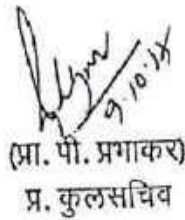 9.10.18
(प्रा. पी. प्रभाकर)
प्र. कुलसचिव